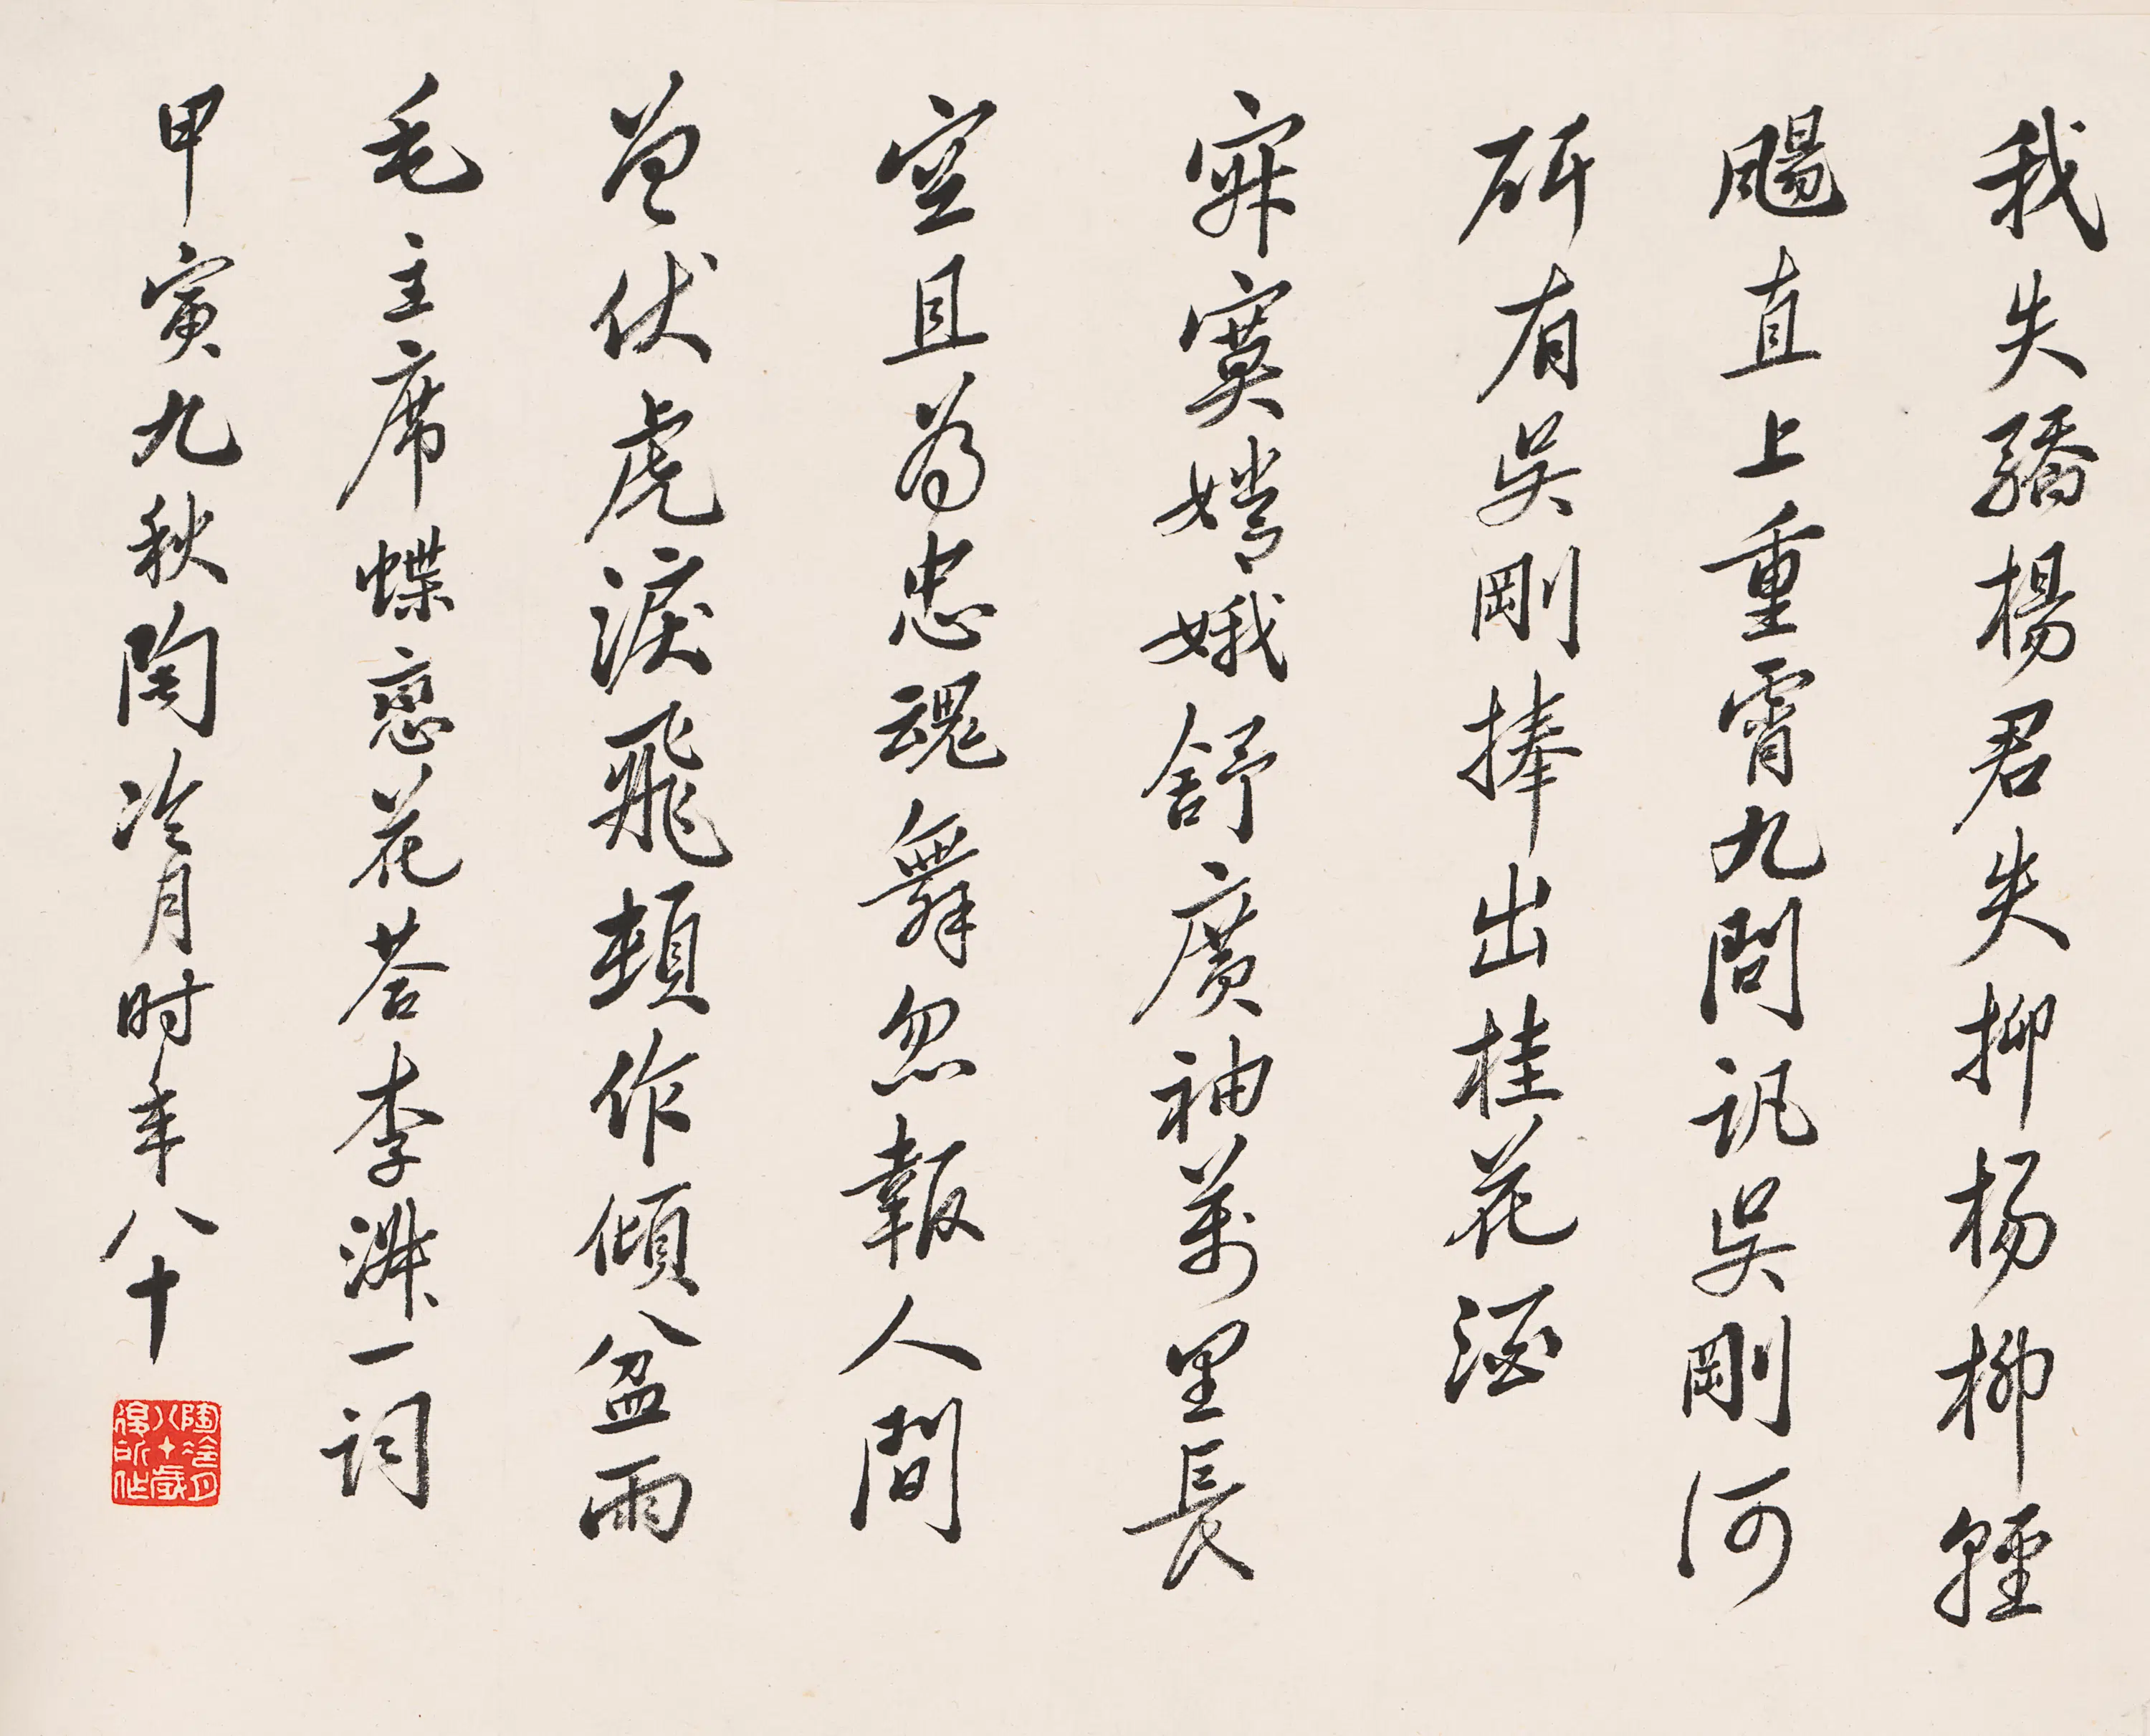 我失驕楊君失柳楊柳輕
颺直上重霄九問訊吳剛何
所有吳剛捧出桂花酒
寂寞嫦娥舒廣袖萬里長
空且為忠魂舞忽報人間
曾伏虎淚飛頓作傾盆雨
毛主席蝶戀花荅李淑一詞
甲寅九秋陶冷月时年八十
陶冷月
八十歲
後所作